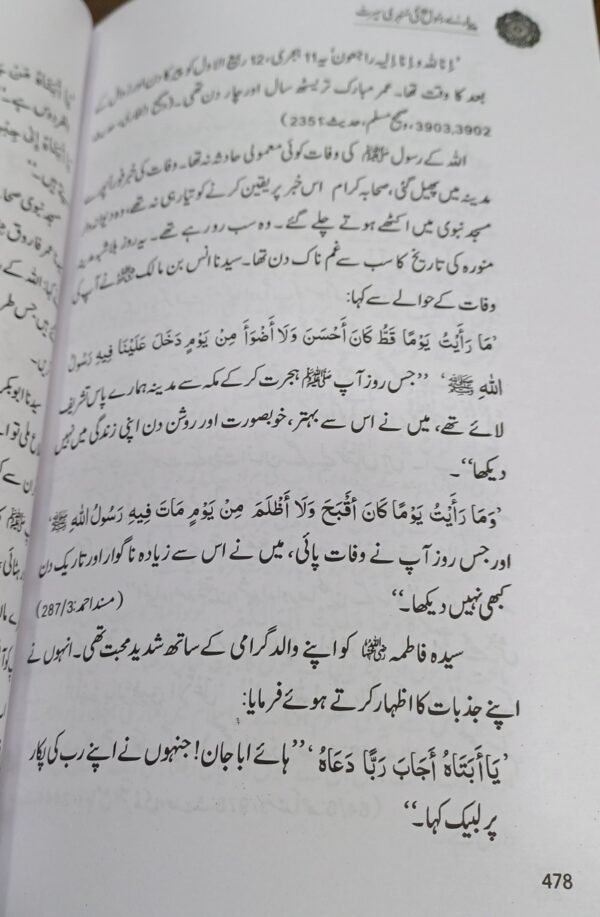 پیارے رسول ﷺ کی سنہری سیرت
’إنا للہ و إنا إلیہ راجعون‘ یہ 11 ہجری، 12 ربیع الاول کو پیر کا دن اور زوال کے
بعد کا وقت تھا۔ عمر مبارک تریسٹھ سال اور چار دن تھی۔ (صحیح البخاری، حدیث:
3903,3902، وصحیح مسلم، حدیث: 2351)
اللہ کے رسول ﷺ کی وفات کوئی معمولی حادثہ نہ تھا۔ وفات کی خبر فوراً
مدینہ میں پھیل گئی، صحابہ کرام اس خبر پر یقین کرنے کو تیار ہی نہ تھے، وہ دیوانہ وار
مسجد نبوی میں اکٹھے ہوتے چلے گئے۔ وہ سب رو رہے تھے۔ یہ روز بلاشبہ مدینہ
منورہ کی تاریخ کا سب سے غم ناک دن تھا۔ سیدنا انس بن مالک نے آپ کی
وفات کے حوالے سے کہا:
’مَا رَأَيْتُ يَوْمًا قَطُّ كَانَ أَحْسَنَ وَلَا أَضْوَأَ مِنْ يَوْمٍ دَخَلَ عَلَيْنَا فِيهِ رَسُولُ
اللهِ ﷺ‘ ’’جس روز آپ ﷺ ہجرت کرکے مکہ سے مدینہ ہمارے پاس تشریف
لائے تھے، میں نے اس سے بہتر، خوبصورت اور روشن دن اپنی زندگی میں نہیں
دیکھا‘‘۔
’وَمَا رَأَيْتُ يَوْمًا كَانَ أَقْبَحَ وَلَا أَظْلَمَ مِنْ يَوْمٍ مَاتَ فِيهِ رَسُولُ اللهِ ﷺ‘
اور جس روز آپ نے وفات پائی، میں نے اس سے زیادہ ناگوار اور تاریک دن
کبھی نہیں دیکھا۔‘‘ (مسند احمد:287/3)
سیدہ فاطمہ رضی اللہ عنہا کو اپنے والد گرامی کے ساتھ شدید محبت تھی۔ انہوں نے
اپنے جذبات کا اظہار کرتے ہوئے فرمایا:
’يَا أَبَتَاهُ أَجَابَ رَبًّا دَعَاهُ‘ ’’ہائے ابا جان! جنہوں نے اپنے رب کی پکار
پر لبیک کہا۔‘‘
478